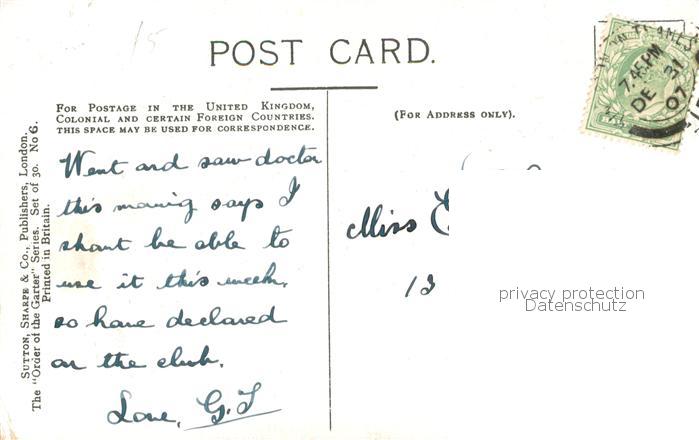 15
POST CARD.
FOR POSTAGE IN THE UNITED KINGDOM,
COLONIAL AND CERTAIN FOREIGN COUNTRIES.
THIS SPACE MAY BE USED FOR CORRESPONDENCE.
(FOR ADDRESS ONLY).
SUTTON, SHARPE & CO., Publishers, London.
The "Order of the Garter" Series. Set of 30. No 6.
Printed in Britain.
Went and saw doctor
this morning says I
shant be able to
use it this week,
so have declared
on the club.
Love, G.T
Miss
13
7.45 PM
DE 21
07
privacy protection
Datenschutz